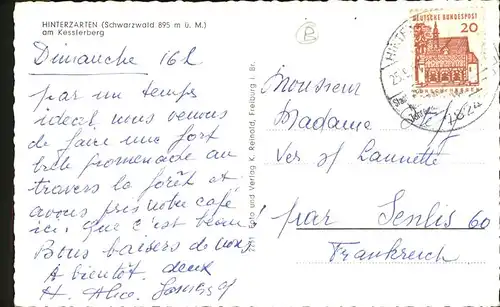 HINTERZARTEN (Schwarzwald 895 m ü. M.)
am Kesslerberg
Dimanche 16h
par un temps
ideal nous venons
de faire une fort
belle promenade au
travers la forêt et
avons pris notre café
ici. Que c'est beau!
Bons baisers de nous
A bientôt. deux
Alice.
Foto und Verlag K. Reinold, Freiburg i. Br.
DEUTSCHE BUNDESPOST
20
HINTE
7824
Monsieur
Madame
Ver s/ Launette
par Senlis 60
Frankreich